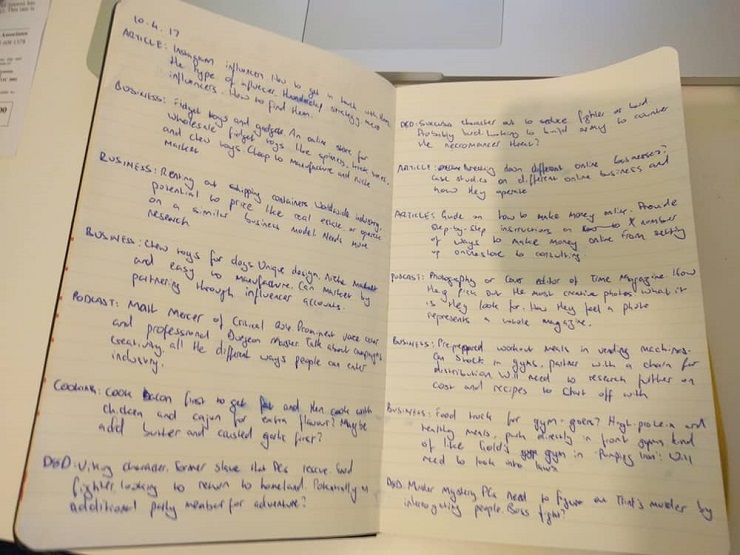 10.4.17
ARTICLE: Instagram influencers How to get in touch with them,
the hype of influencer strategy, micro
influencers. How to find them.
BUSINESS: Fidget toys and gadgets An online store for
wholesale fidget toys like spinners, trick
and chew toys. Cheap to manufacture and niche
market
BUSINESS: Renting out shipping containers Worldwide industry,
potential to price like real estate or operate
on a similar business model. Needs more
research
BUSINESS: Chew toys for dogs. Unique design. Niche market
and easy to manufacture. Can market by
partnering through influencer accounts.
PODCAST: Matt Mercer of Critical Role. Prominent voice actor
and professional Dungeon Master. Talk about campaigns
creativity, all the different ways people can enter
industry.
COOKING: Cook bacon first to get fat and then cook with
chicken and cajun for extra flavour? Maybe
add butter and crushed garlic first?
D&D: Viking character. Former slave that PCs rescue. Good
fighter, looking to return to homeland. Potentially an
additional party member for adventure?
D&D: Succubus character out to seduce fighter or bard
Probably bard. Looking to build army to counter
the necromancer threat?
ARTICLE: Breaking down different online businesses?
Case studies on different online business and
how they operate
ARTICLE: Guide on how to make money online. Provide
step-by-step instructions on X number
of ways to make money online from setting
up onlinestore to consulting.
PODCAST: Photography or Cover editor of Time Magazine. How
they pick out the most creative photos, what it
is they look for. How they feel a photo
represents a whole magazine.
BUSINESS: Pre-prepared workout meals in vending machines.
Can stock in gyms, partner with a chain for
distribution. Will need to research further on
cost and recipes to start off with
BUSINESS: Food truck for gym-goers? High-protein and
healthy meals, park directly in front gyms, kind
of like Gold's gym in Pumping Iron. Will
need to look into laws
D&D: Murder Mystery. PCs need to figure out that's murder by
interrogating people. Boss fight?